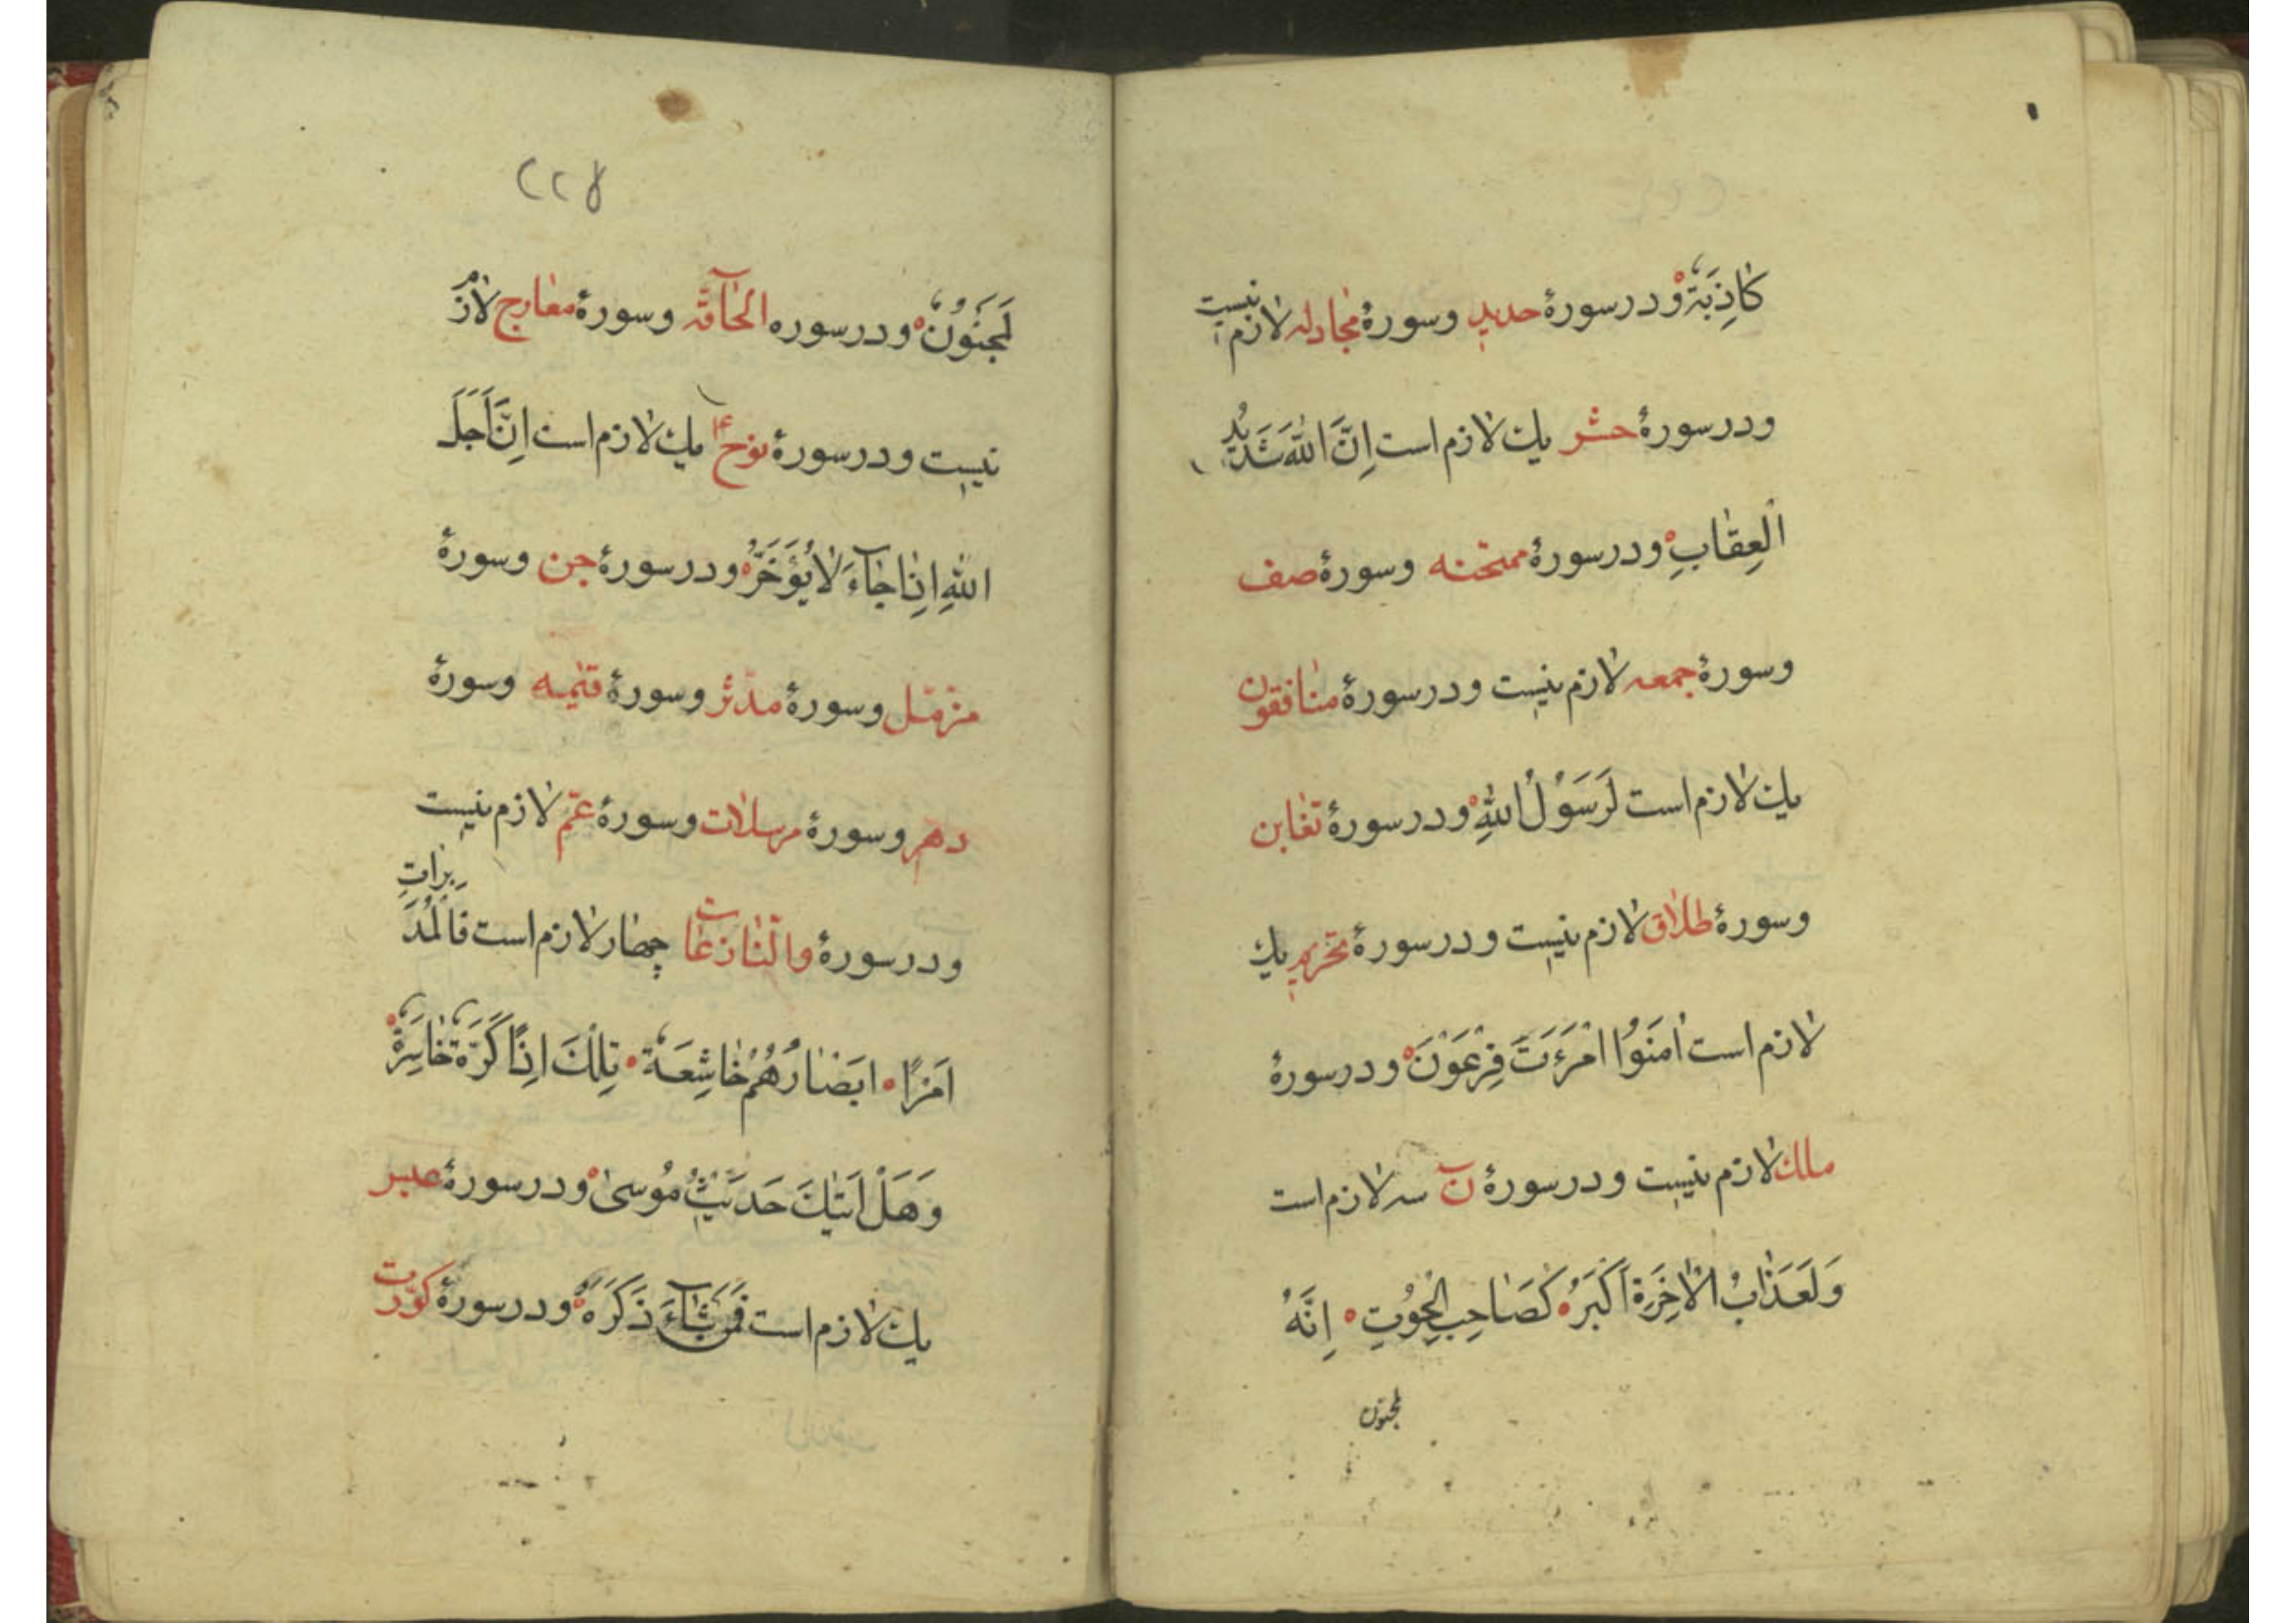 كٰاذِبَةٌ ودرسورهٔ حديد وسورهٔ مجٰادله لازم نيست
ودرسورهٔ حشر يك لازم است اِنَّ اللّٰهَ شَدَيْدُ
الْعِقٰابِ ودرسورهٔ ممتحنه وسورهٔ صف
وسورهٔ جمعه لازم نيست ودرسورهٔ منٰافقون
يك لازم است لَرَسَوُلُ اللّٰهِ ودرسورهٔ تغٰابن
وسورهٔ طلاق لازم نيست ودرسورهٔ تحريم يك
لازم است اٰمَنَوُا امْرَءَتَ فِرْعَوْنَ ودرسورهٔ
ملك لازم نيست ودرسورهٔ نٓ سه لازم است
وَلَعَذٰابُ الْاٰخِرَةِ اَكْبَرُ كَصٰاحِبِ الْحُوُتِ اِنَّهُ
لمجنون
٢٢٤
لَمَجْنَوُنٌ ودرسوره الحٰآقّه وسورهٔ معٰارج لازم
نيست ودرسورهٔ نوح ع يك لازم است اِنَّ اَجَلَ
اللّٰهِ اِذٰا جٰآءَ لاٰيُؤَخَّرُ ودرسورهٔ جن وسورهٔ
مزمّل وسورهٔ مدّثر وسورهٔ قيٰمه وسورهٔ
دهر وسورهٔ مرسلات وسورهٔ عمّ لازم نيست
ودرسورهٔ والنّٰازعٰات چهٰار لازم است فَالْمُدَبِّرٰاتِ
اَمْرًا اَبصٰارُهُمْ خٰاشِعَةٌ تِلْكَ اِذًا كَرَّةٌ خٰاسِرَةٌ
وَهَلْ اَتٰيكَ حَدَيْثُ مُوُسىٰ ودرسورهٔ عبس
يك لازم است فَمَنْ شٰآءَ ذَكَرَهُ ودرسورهٔ كوّرت